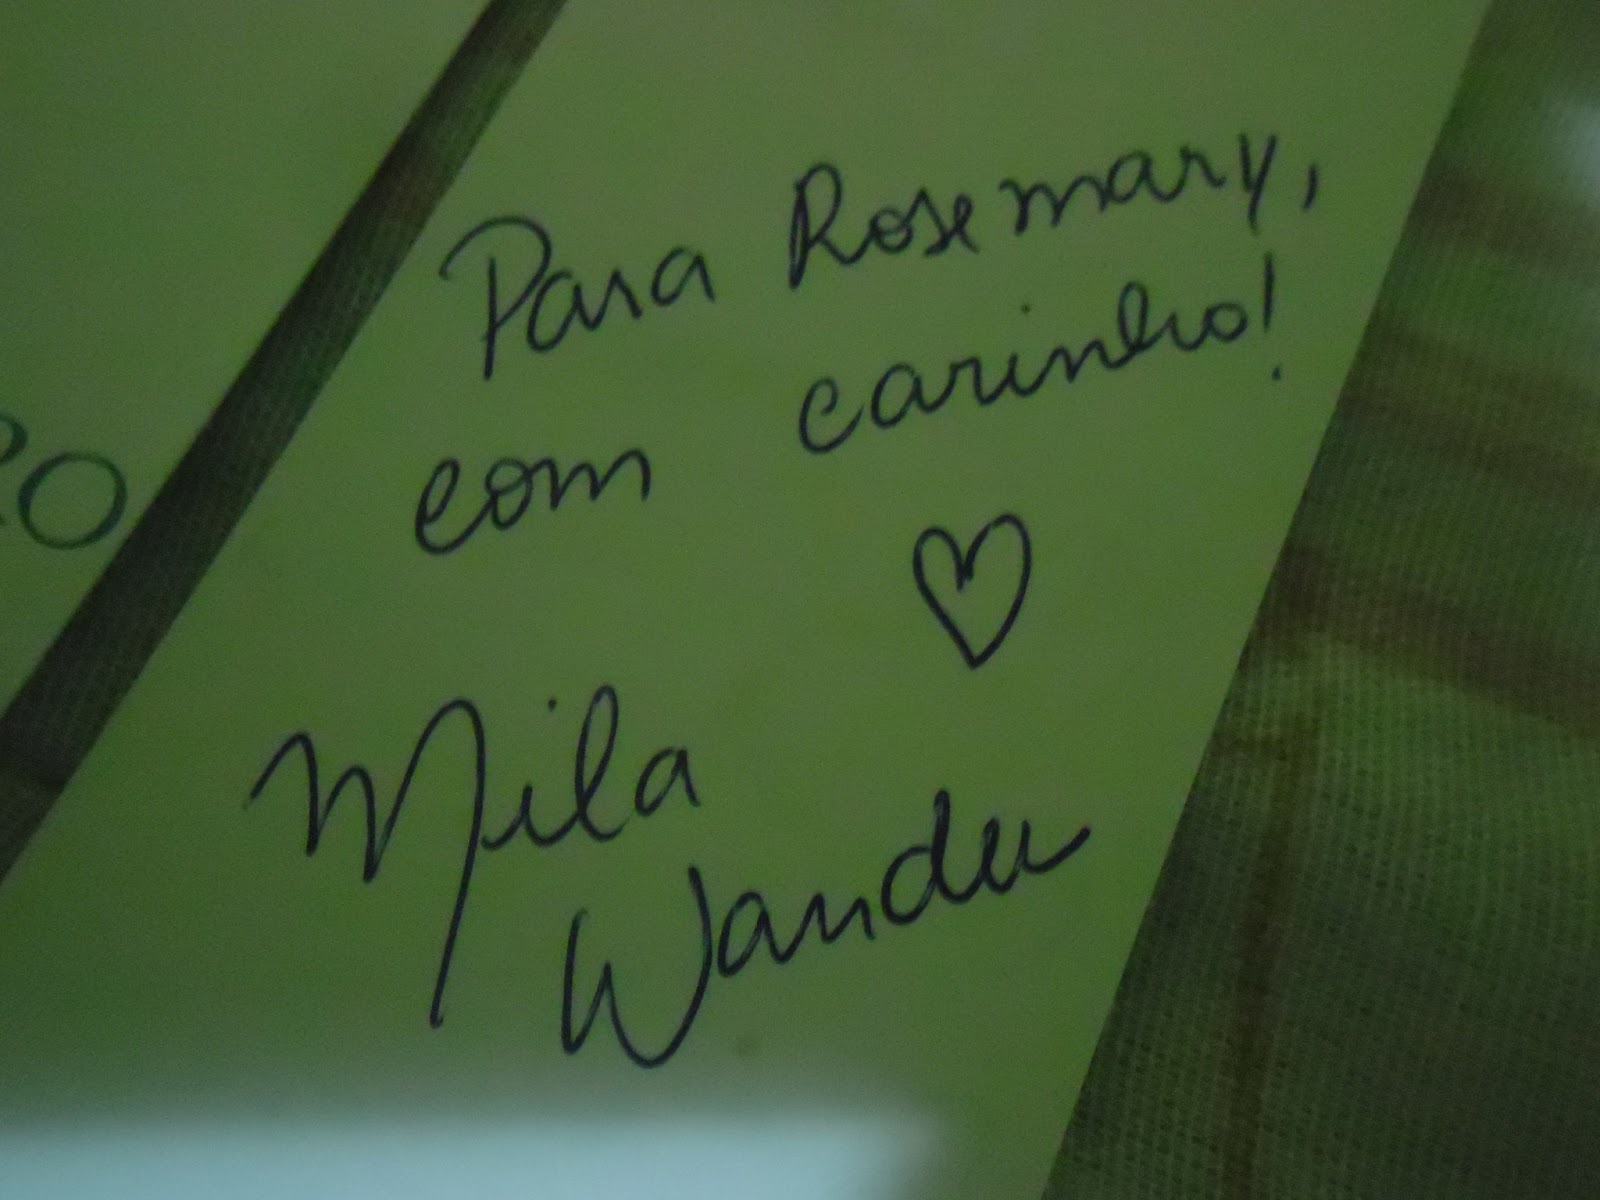 Para Rosemary,
com carinho!
Mila
Wander
RO